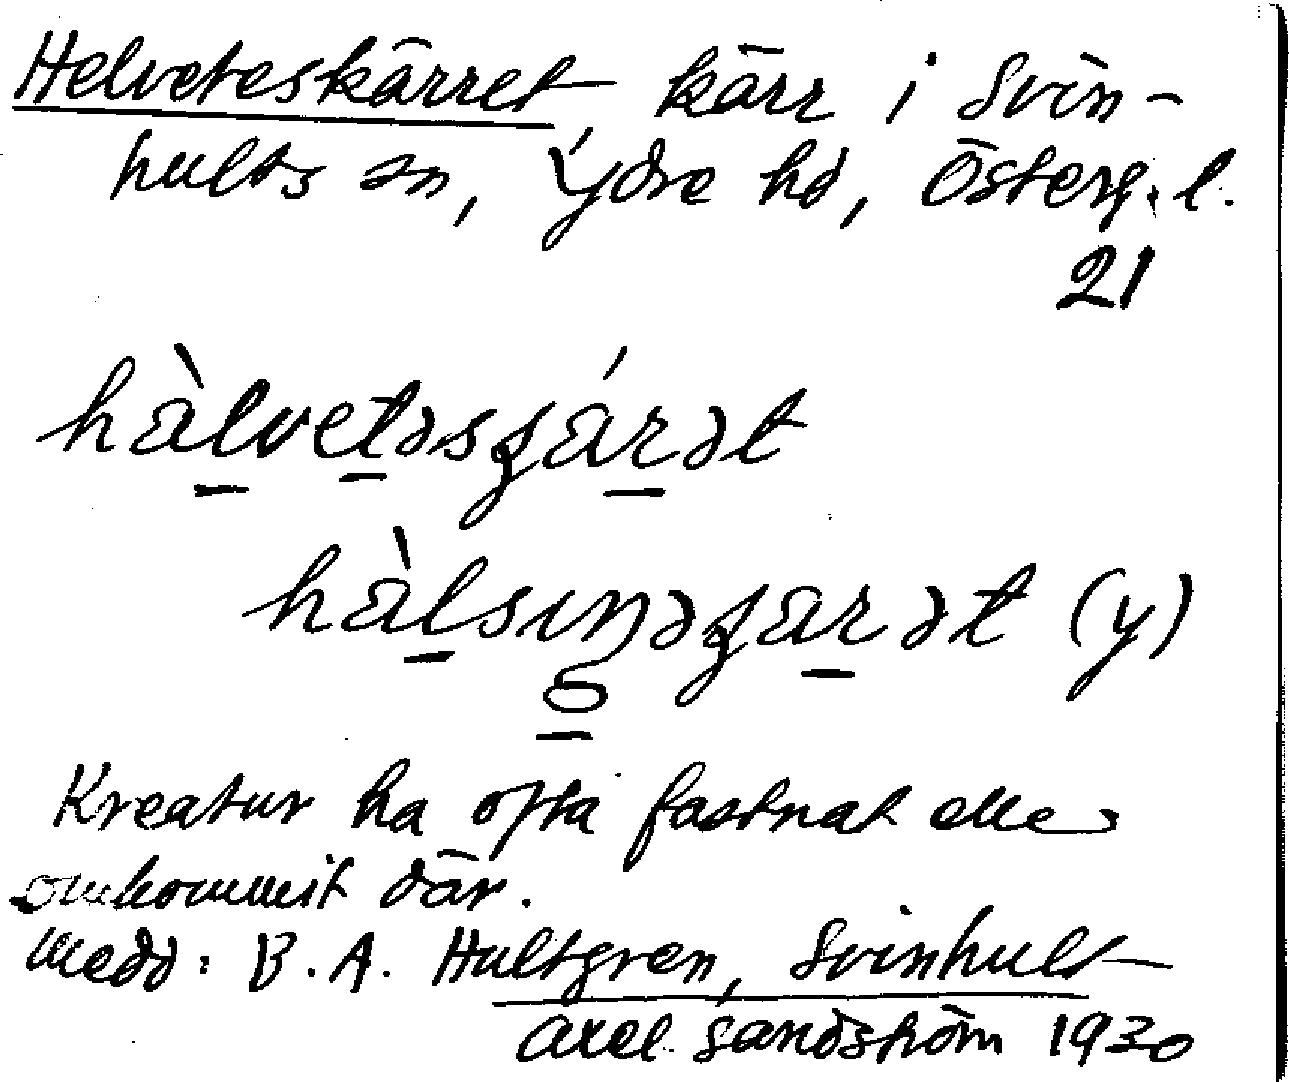 Helveteskärret, kärr i Svin-
hults sn, Ydre hd, Österg. l.
21
(y)
Kreatur ha ofta fastnat eller
omkommit där.
Medd: B. A. Hultgren, Svinhult
Axel Sandström 1930